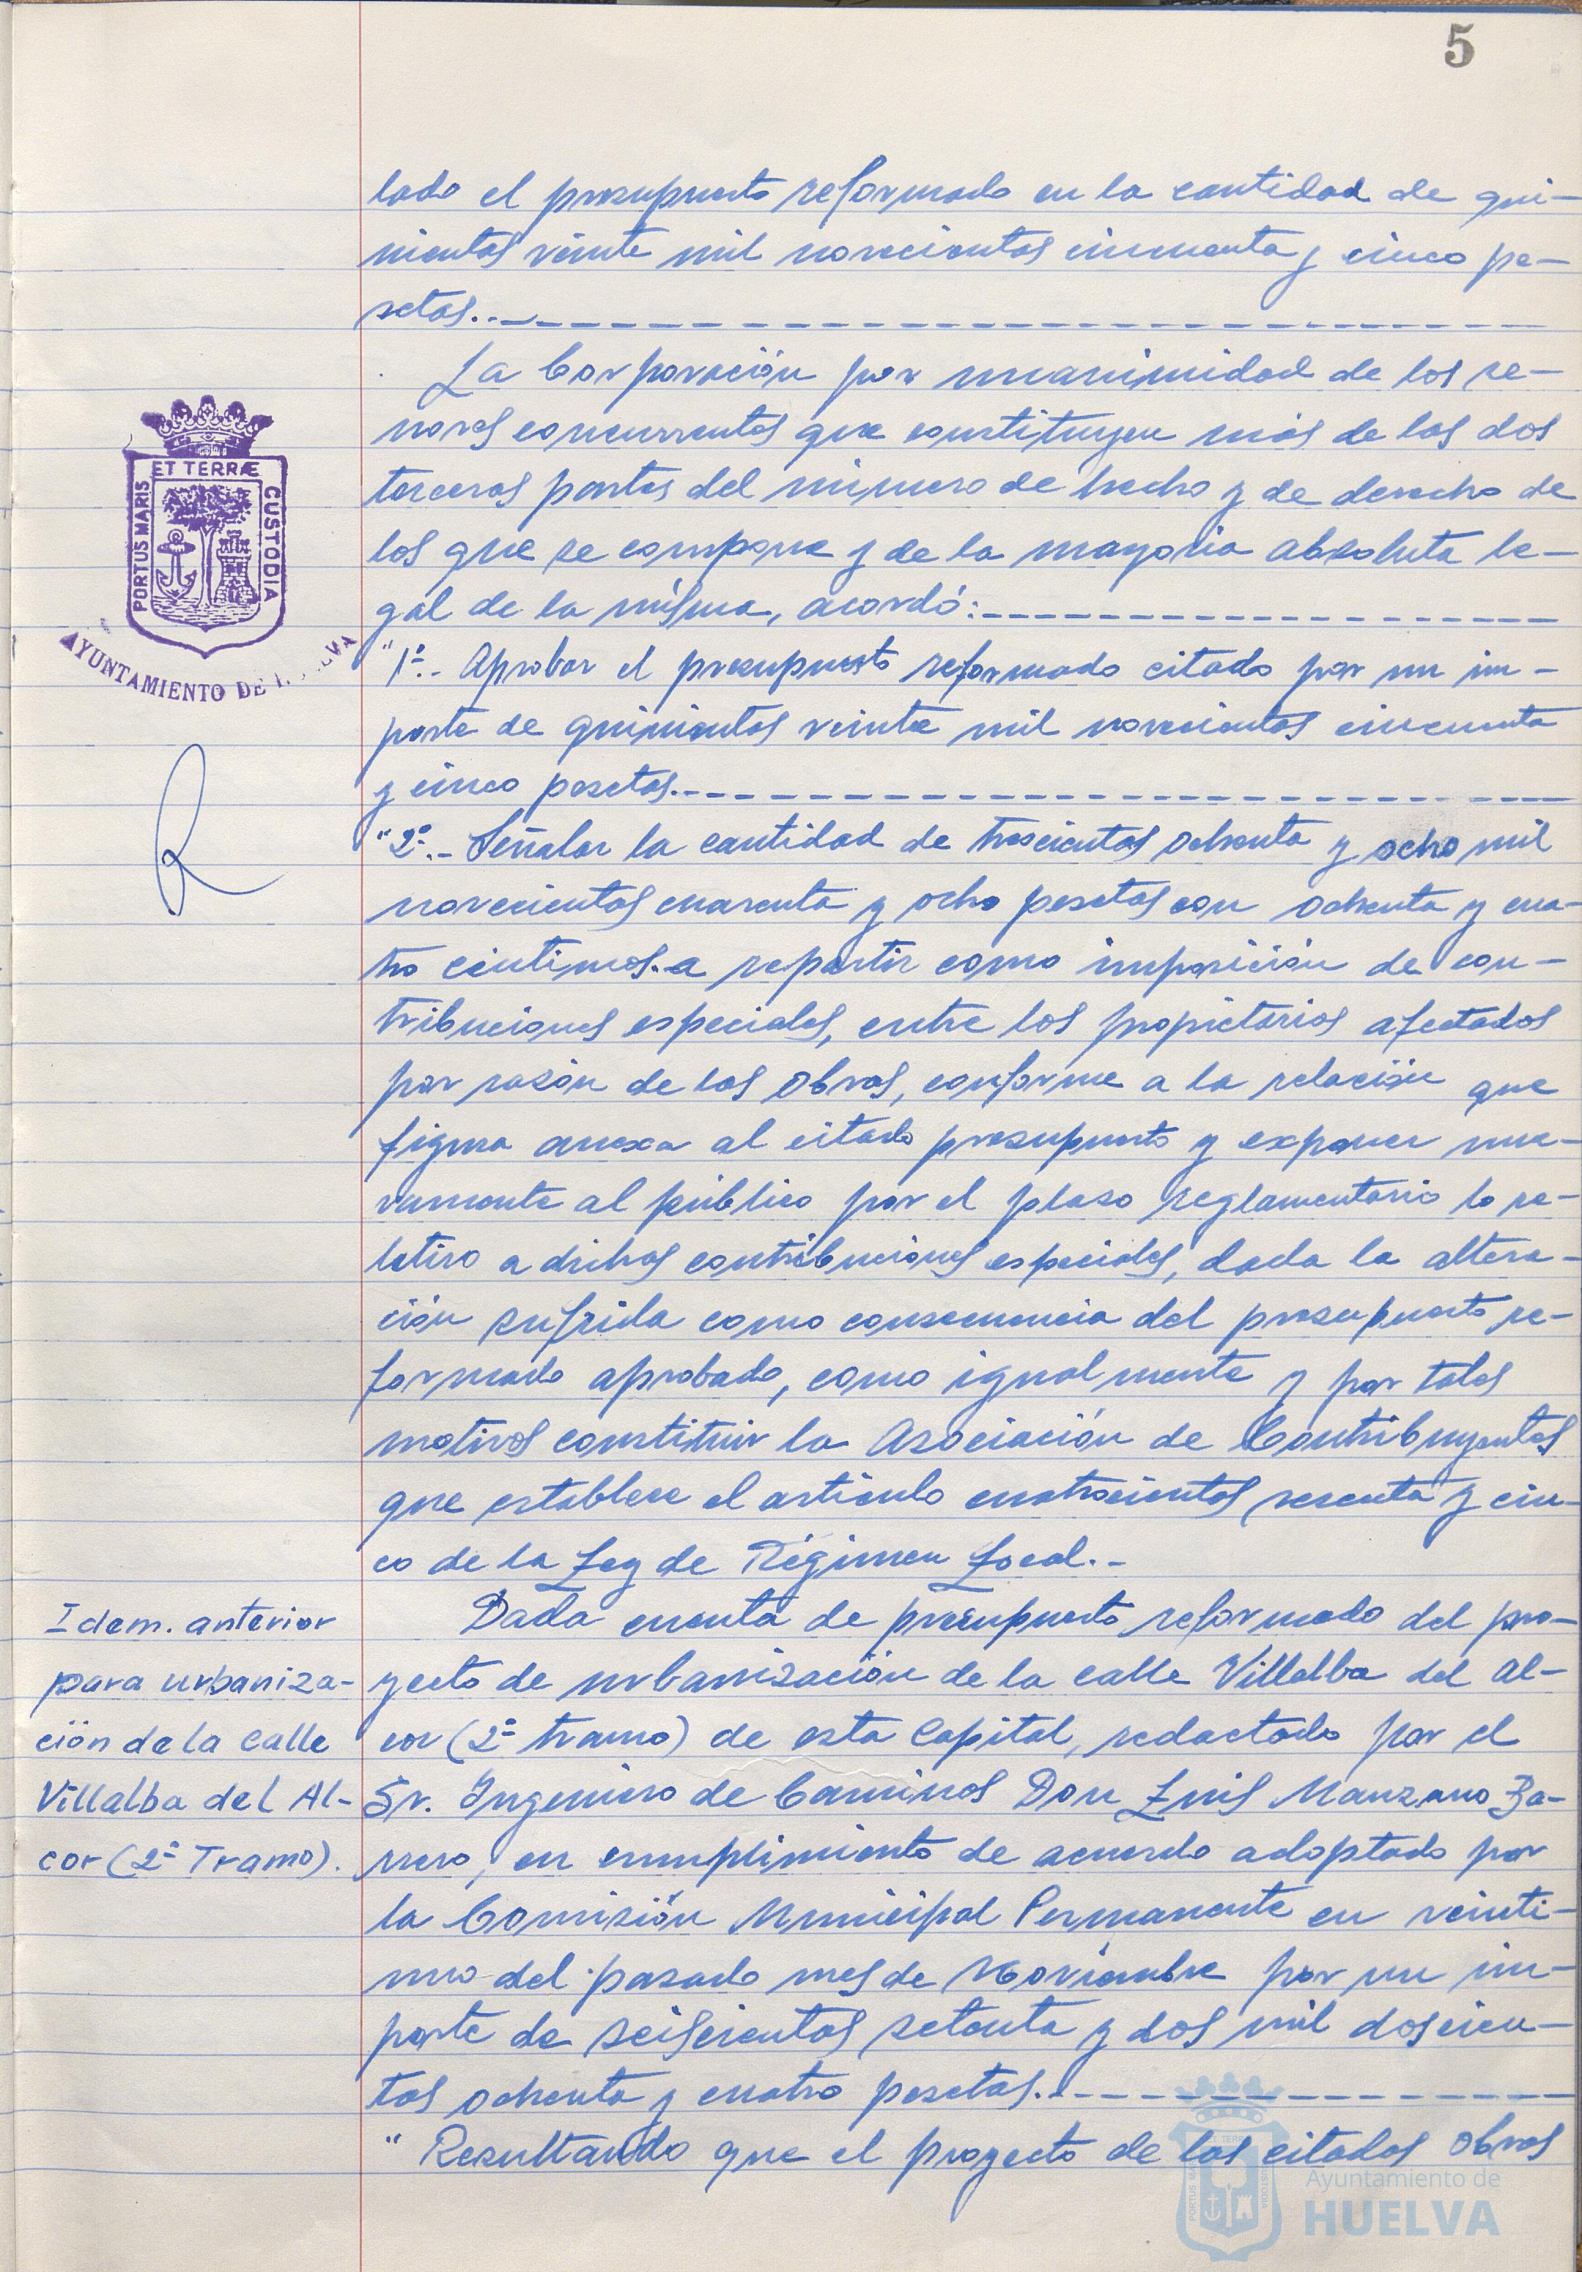 5
lado el presupuesto reformado en la cantidad de qui-
nientas veinte mil novecientas cincuenta y cinco pe-
setas.
La Corporación por unanimidad de los se-
nores concurrentes que constituyen más de las dos
terceras partes del número de hecho y de derecho de
los que se compone y de la mayoria absoluta le-
gal de la misma, acordó:
"1º.- Aprobar el presupuesto reformado citado por un im-
porte de quinientas veinte mil novecientas cincuenta
y cinco pesetas.
"2º.- Señalar la cantidad de trescientas ochenta y ocho mil
novecientas cuarenta y ocho pesetas con ochenta y cua-
tro céntimos a repartir como imposición de con-
tribuciones especiales, entre los propietarios afectados
por razón de las obras, conforme a la relación que
figura anexa al citado presupuesto y exponer nue-
vamente al público por el plazo reglamentario lo re-
lativo a dichas contribuciones especiales, dada la altera-
ción sufrida como consecuencia del presupuesto re-
formado aprobado, como igualmente y por tales
motivos constituir la Asociación de Contribuyentes
que establece el articulo cuatrocientos sesenta y cin-
co de la Ley de Régimen Local.-
Dada cuenta de presupuesto reformado del pro-
yecto de urbanización de la calle Villalba del Al-
cor (2º tramo) de esta Capital, redactado por el
Sr. Ingeniero de Caminos Don Luis Manzano Ba-
rrero, en cumplimiento de acuerdo adoptado por
la Comisión Municipal Permanente en veinti-
uno del pasado mes de Noviembre por un im-
porte de seiscientas setenta y dos mil doscien-
tas ochenta y cuatro pesetas.
"Resultando que el proyecto de las citadas obras
Idem. anterior
para urbaniza-
ción de la calle
Villalba del Al-
cor (2º Tramo).
PORTUS MARIS
ET TERRÆ
CUSTODIA
AYUNTAMIENTO DE HUELVA
Ayuntamiento de
HUELVA